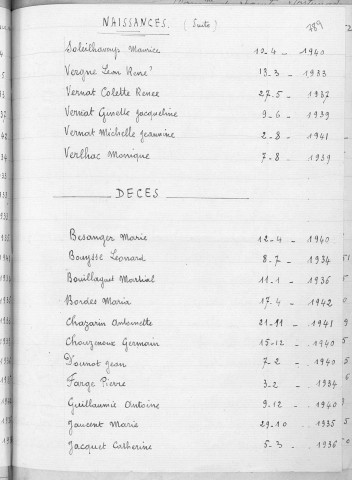 NAISSANCES. (Suite) 789
Soleilhavoup Maurice 10-4 - 1940
Vergne Leon René 13.3 - 1933
Vernat Colette Renee 27.5 - 1937
Vernat Ginette Jacqueline 9-6 - 1939
Vernat Michelle Jeannine 2-8 - 1941
Verlhac Monique 7-8 - 1939
DECES
Besanger Marie 12-4 - 1940
Bouysse Leonard 8.7 - 1934
Bouillaguet Martial 11.1 - 1936
Bordes Maria 17.4 - 1942
Chazarin Antoinette 21-11 - 1941
Chouzenoux Germain 15.12 - 1940
Dournot Jean 7.2 - 1940
Farge Pierre 3.2 - 1934
Guillaumie Antoine 9.12 - 1940
Jaucent Marie 29.10 - 1935
Jacquet Catherine 5.3 - 1936